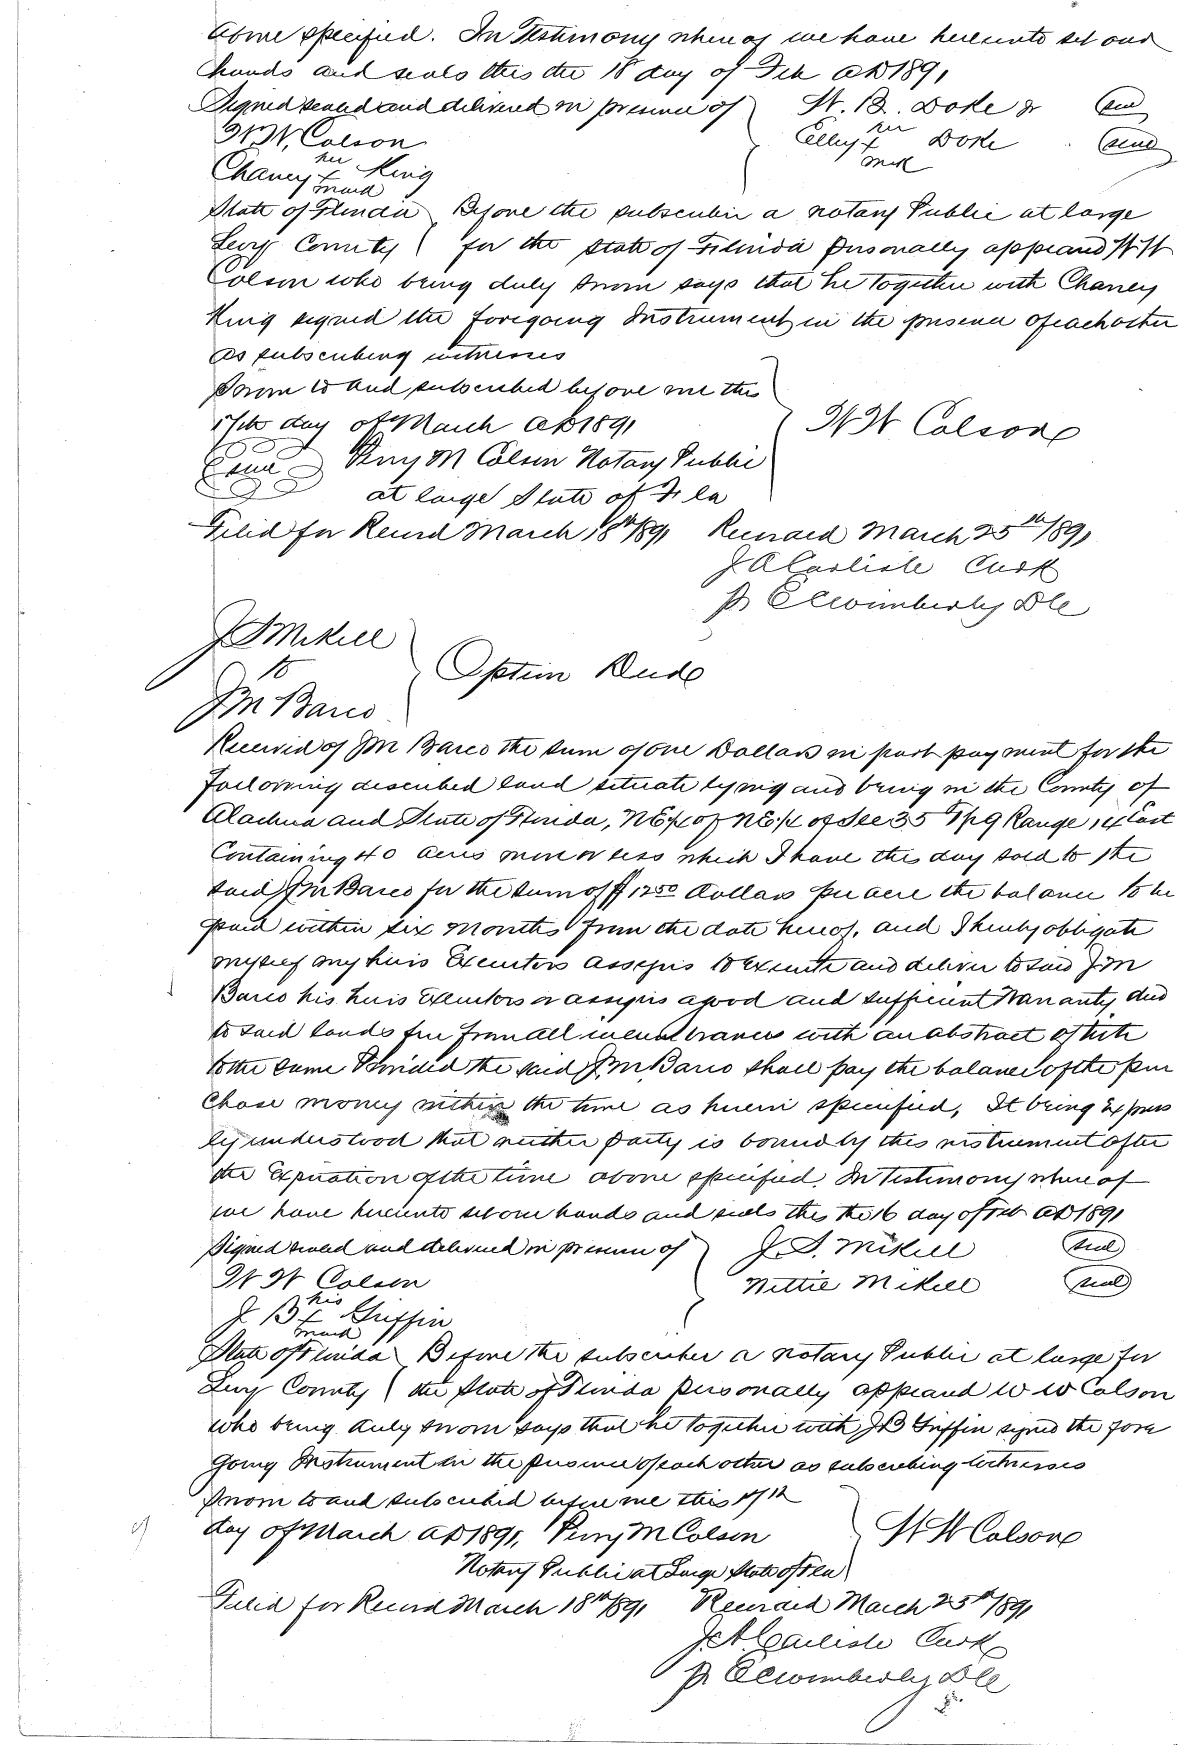 above specified. In Testimony whereof we have hereunto set our
hands and seals this the 18 day of Feb AD 1891
Signed sealed and delivered in presence of W. B. Doke Jr (seal)
W W, Colson Celley her x mark Doke (seal)
Chaney her x mark King
State of Florida Before the subscriber a notary Public at large
Levy County for the State of Florida personally appeared W W
Colson who being duly sworn says that he together with Chaney
King signed the foregoing Instrument in the presence of each other
as subscribing witnesses
Sworn to and subscribed before me this
17th day of March AD 1891 W W Colson
seal Perry M Colson Notary Public
at large State of Fla
Filed for Record March 18th/891 Recorded March 25th/891
J A Carlisle Clerk
pr E C Wimberly D C
J S Mikell
to Option Deed
J M Barco
Received of J M Barco the sum of one Dollars in part payment for the
following described land situate lying and being in the County of
Alachua and State of Florida, NE¼ of NE¼ of Sec 35 Tp 9 Range 14 East
Containing 40 acres more or less which I have this day sold to the
said J M Barco for the sum of $12.50 dollars per acre the balance to be
paid within six months from the date hereof, and I hereby obligate
myself my heirs Executors assigns to Execute and deliver to said J M
Barco his heirs Executors or assigns a good and sufficient Warranty deed
to said lands free from all incumbrances with an abstract of title
to the same Provided the said J. M. Barco shall pay the balance of the pur
chase money within the time as herein specified, It being Express
ly understood that neither party is bound by this instrument after
the Expiration of the time above specified. In Testimony whereof
we have hereunto set our hands and seals this the 16 day of Feb AD 1891
Signed sealed and delivered in presence of J. S. Mikell (seal)
W W Colson Nettie Mikell (seal)
J B his x mark Griffin
State of Florida Before the subscriber a notary Public at large for
Levy County the State of Florida personally appeared W W Colson
who being duly sworn says that he together with J B Griffin signed the fore
going Instrument in the presence of each other as subscribing witnesses
Sworn to and subscribed before me this 17th
day of March AD 1891, Perry M Colson W W Colson
Notary Public at Large State of Fla
Filed for Record March 18th/891 Recorded March 25th/891
J. A. Carlisle Clerk
pr E C Wimberly D C